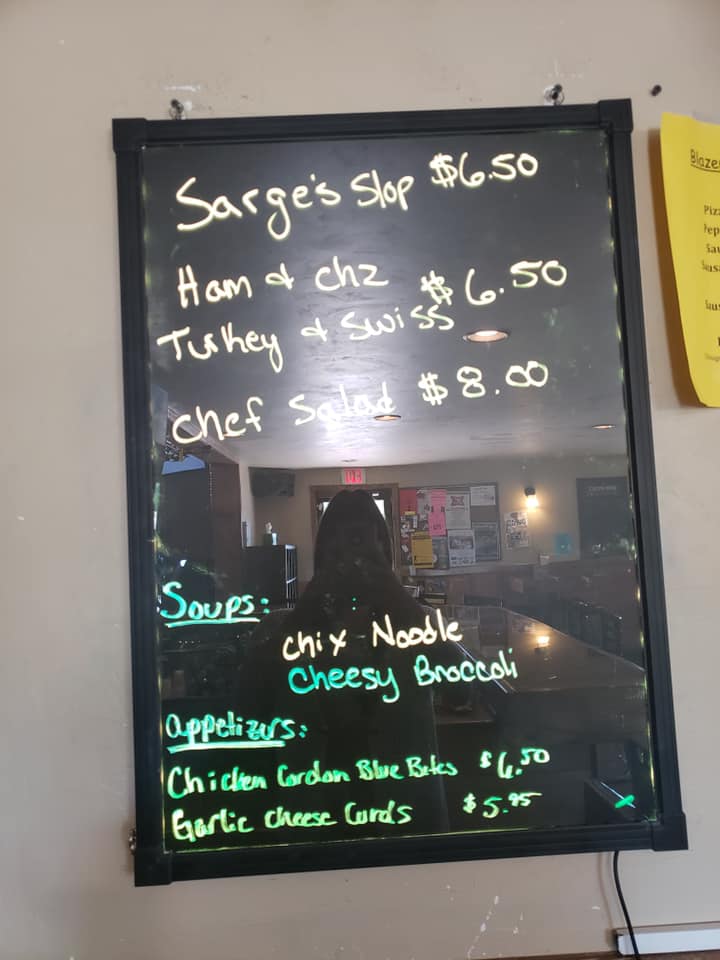 Sarge's Slop $6.50
Ham & chz $6.50
Turkey & Swiss
Chef Salad $8.00
Soups:
Chix Noodle
Cheesy Broccoli
Appetizers:
Chicken Cordon Blue Bites $6.50
Garlic Cheese Curds $5.95
Blaze
Piz
Pep
Sau
Saus